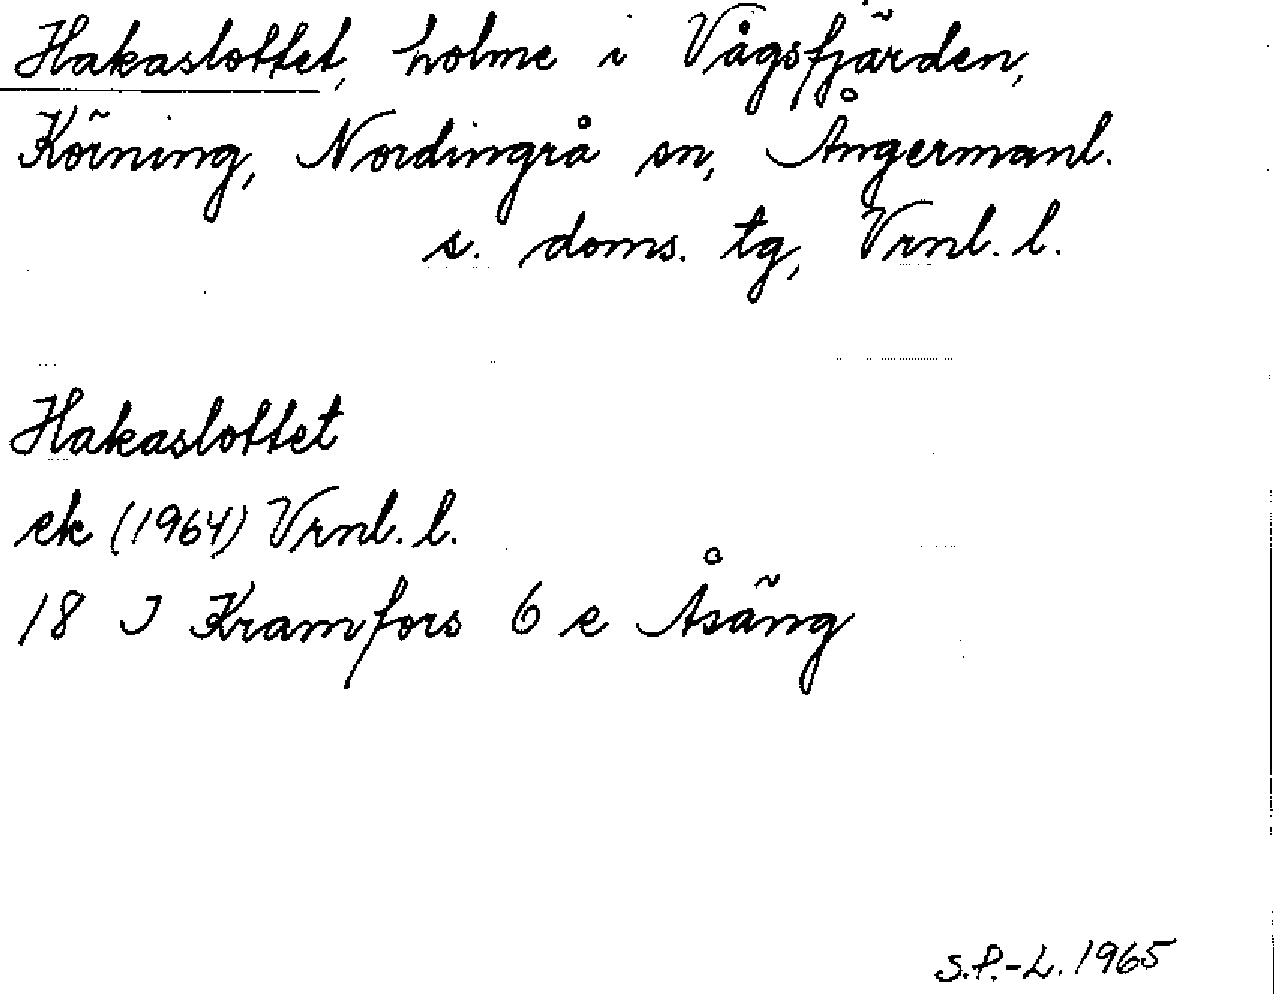 Hakaslottet, holme i Vågsfjärden,
Körning, Nordingrå sn, Ångermanl.
s. doms. tg, Vrnl. l.
Hakaslottet
ek (1964) Vrnl. l.
18 I Kramfors 6 e Åsäng
S.P.-L. 1965